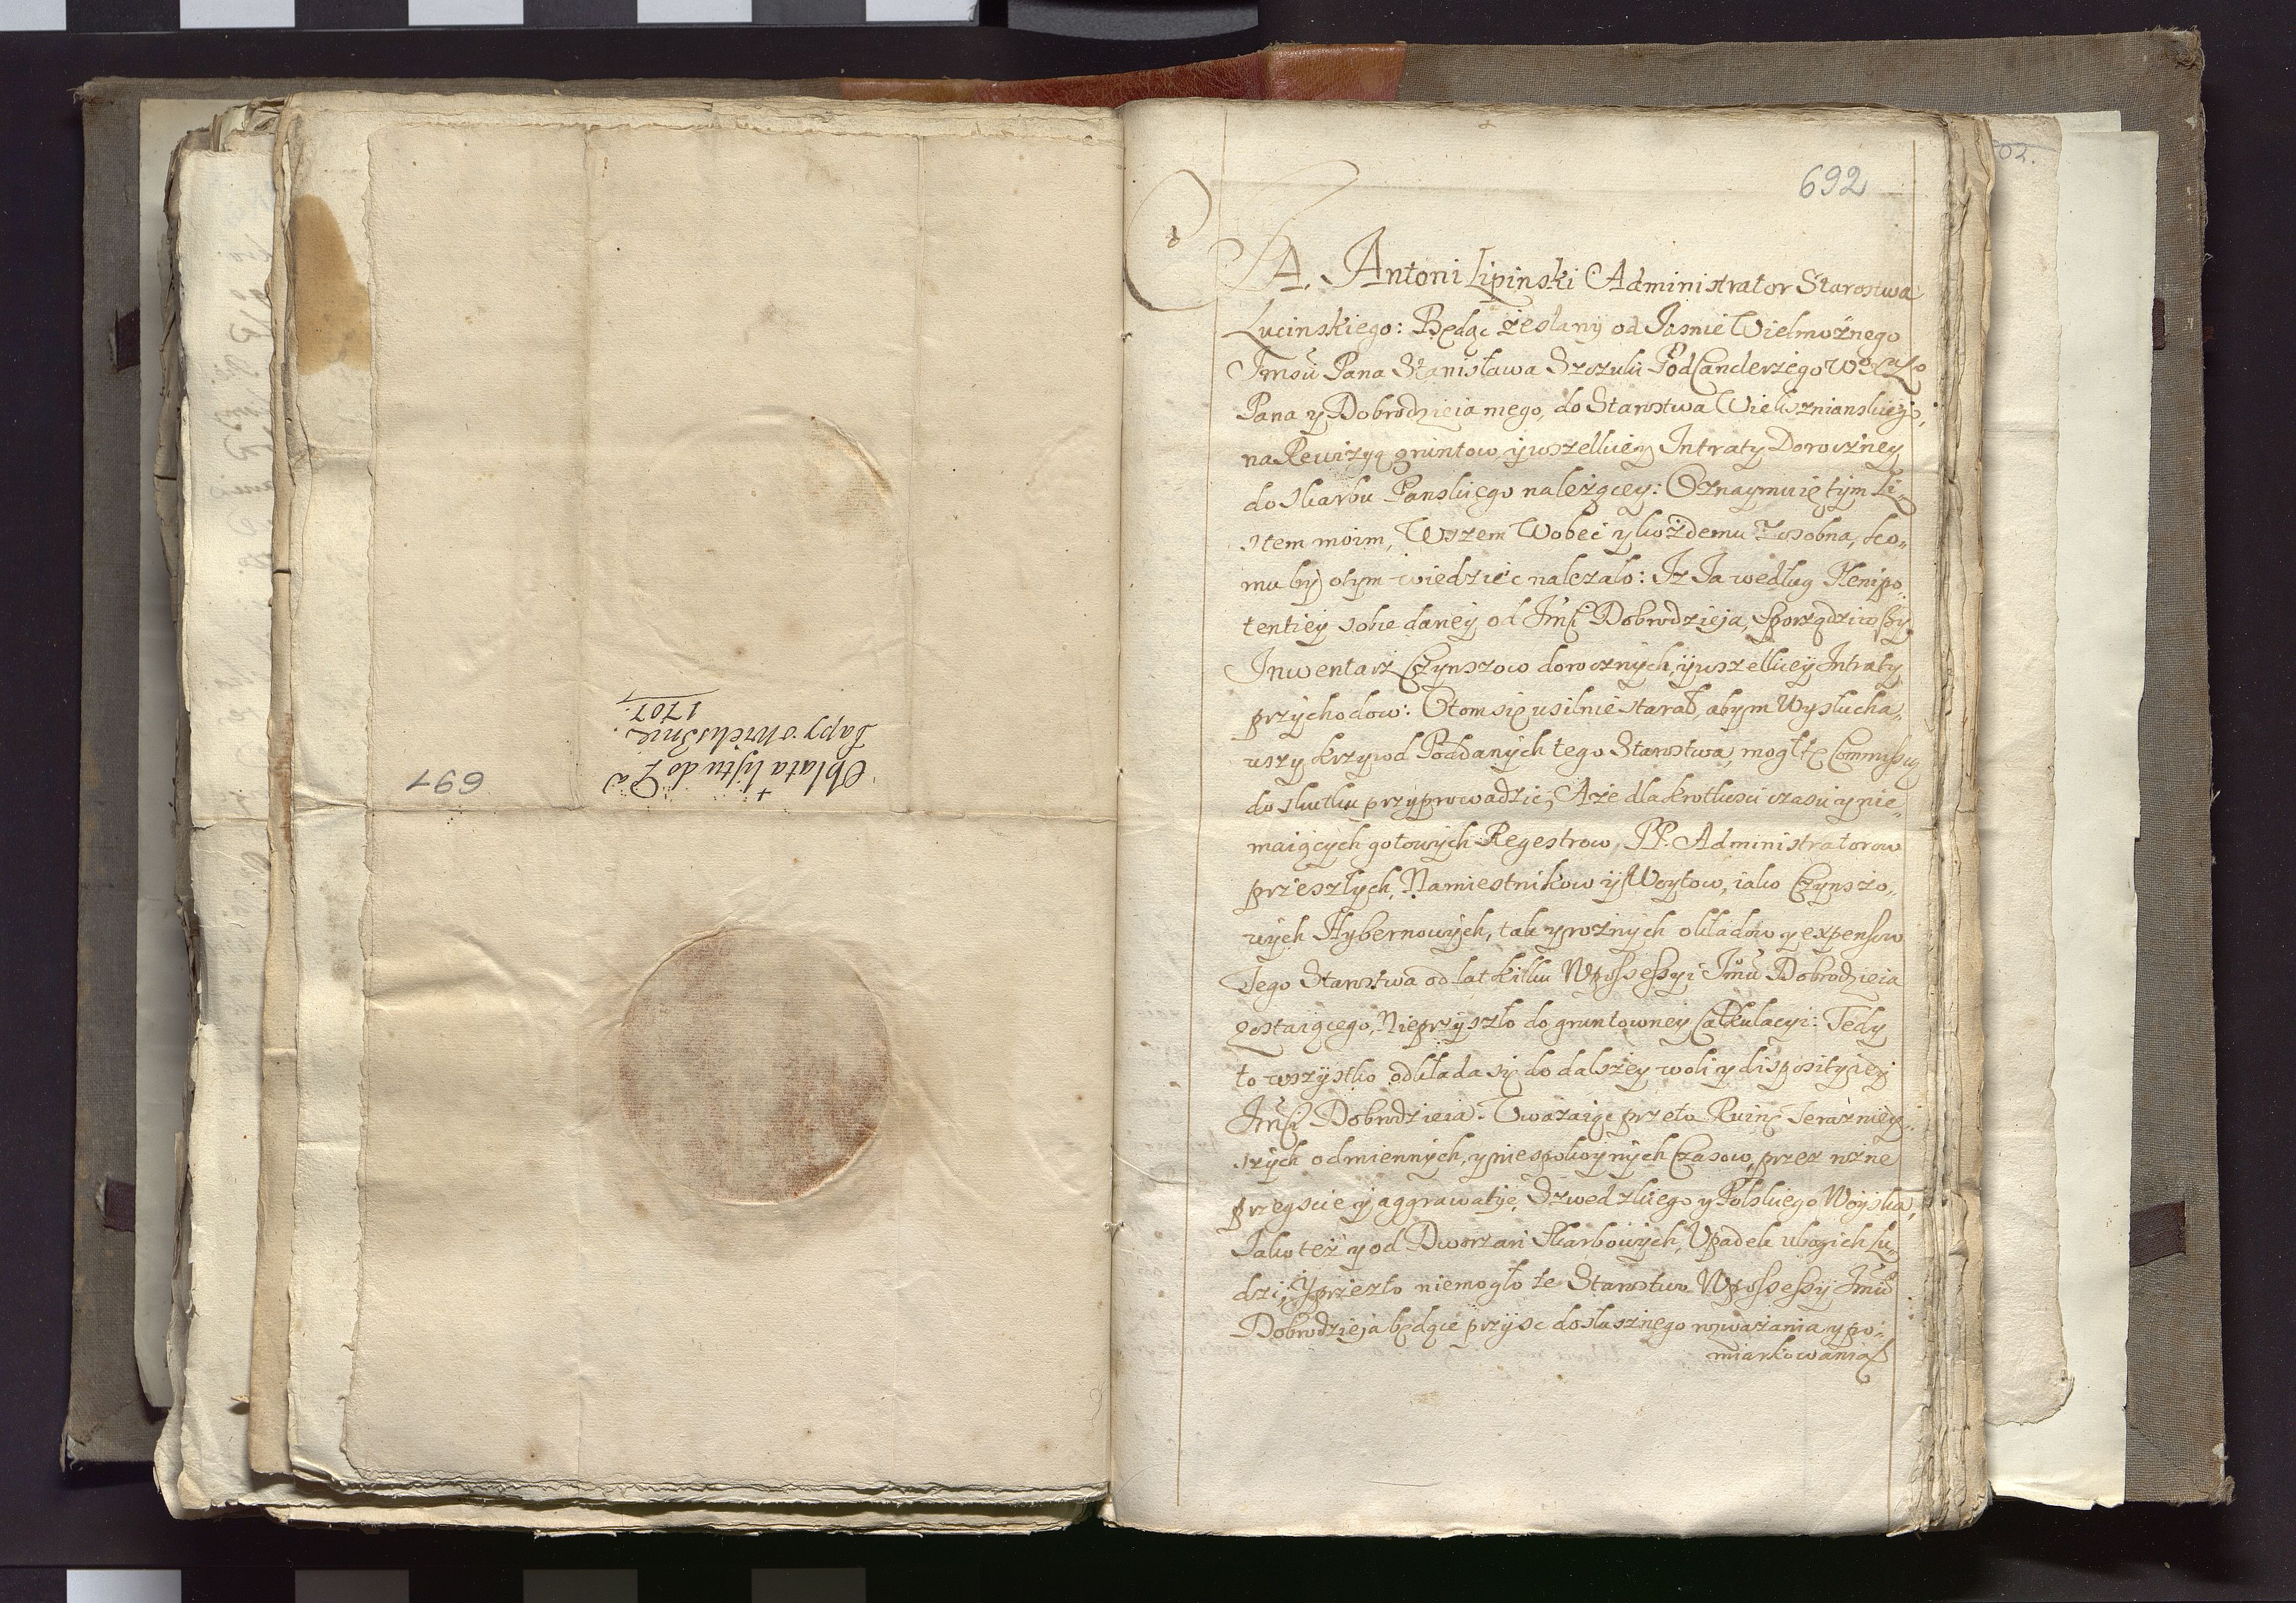 Oblata listu do
Łapy o Wieliźnie
1707.
691
692
JA, Antoni Lipinski Administrator Starostwa
Lucinskiego: Będąc zesłany od Jasnie Wielmożnego
Jmsci Pana Stanisława Szczuki PodCanclerzego
Pana y Dobrodzieia mego, do Starostwa Wielisznianskiego,
na Rewizyą gruntow, y wszelkiey Intraty Doroczney
do Skarbu Panskiego należącey: Oznaymuię tym Li-
stem moim, Wszem Wobec y każdemu Zosobna, ko-
mu by o tym wiedziec nalezalo: Iz Ja według Plenipo-
tentiey sobie daney od Jmsci Dobrodzieja, Sporządziwszy
Inwentarz Czynszow dorocznych, y wszelkiey Intraty
przychodow: O tom się usilnie starał, abym Wysłucha-
wszy krzywd Poddanych tego Starostwa, mogł tę Commissyą
do skutku przyprowadzic, A że dla krotkosci czasu y nie-
maiących gotowych Regestrow, PP. Administratorow
przeszłych, Namiestnikow y Woytow, iako Czynszo-
wych Hybernowych, tak y rożnych okładow y expensow
Tego Starostwa od lat kilku W possessyi Jmsci Dobrodzieia
zostaiącego, Nieprzyszło do gruntowney Calkulacyi: Tedy
to wszystko odkłada się do dalszey woli y dispositiey
Jmsci Dobrodzieia. Uważaiąc przeto Ruinę Teraźniey-
szych odmiennych, y niespokoynych Czasow, przez rożne
przeyscie y aggrawatię, Szwedzkiego y Polskiego Woyska,
Jako też y od Dworzan Skarbowych, Upadek ubogich Lu-
dzi, Y przezto niemogło te Starostwo W possessyi Jmsci
Dobrodzieja będące przyjsc do słusznego rozważania y po-
miarkowania